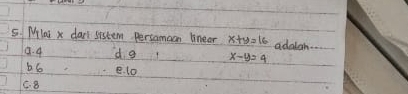 5. Nilai x dari sistem persamaan linear x+y=16 adalah....
x-y=4
a. 4 d. 9
b. 6 e. 10
c. 8